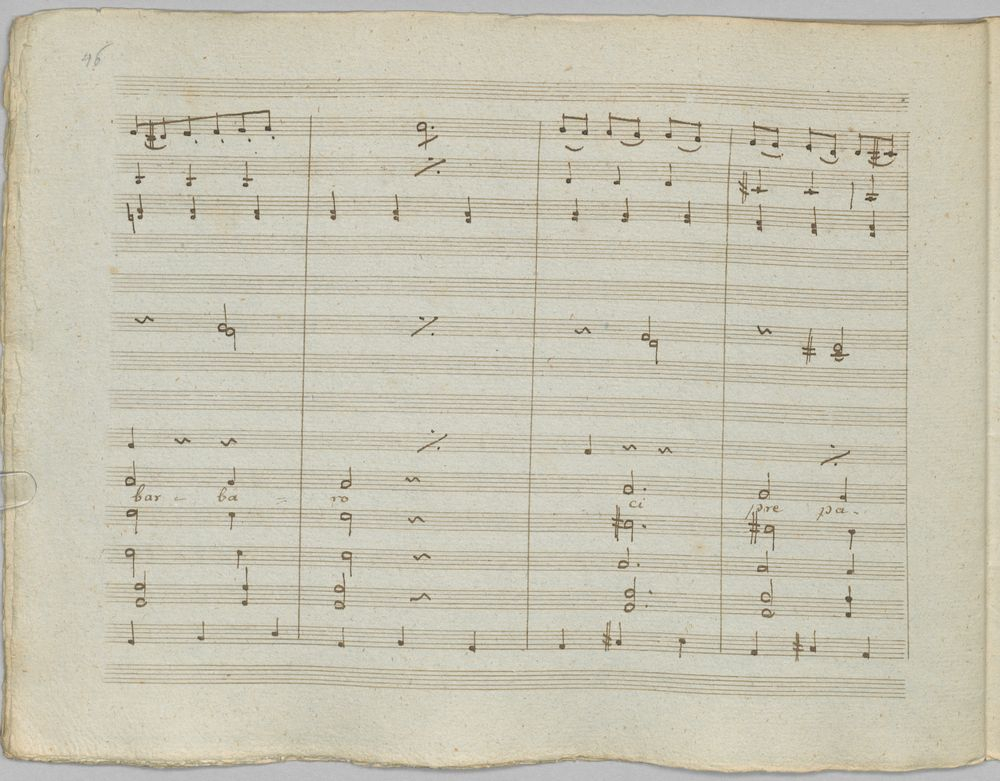 46
bar - ba = ro ci pre pa -